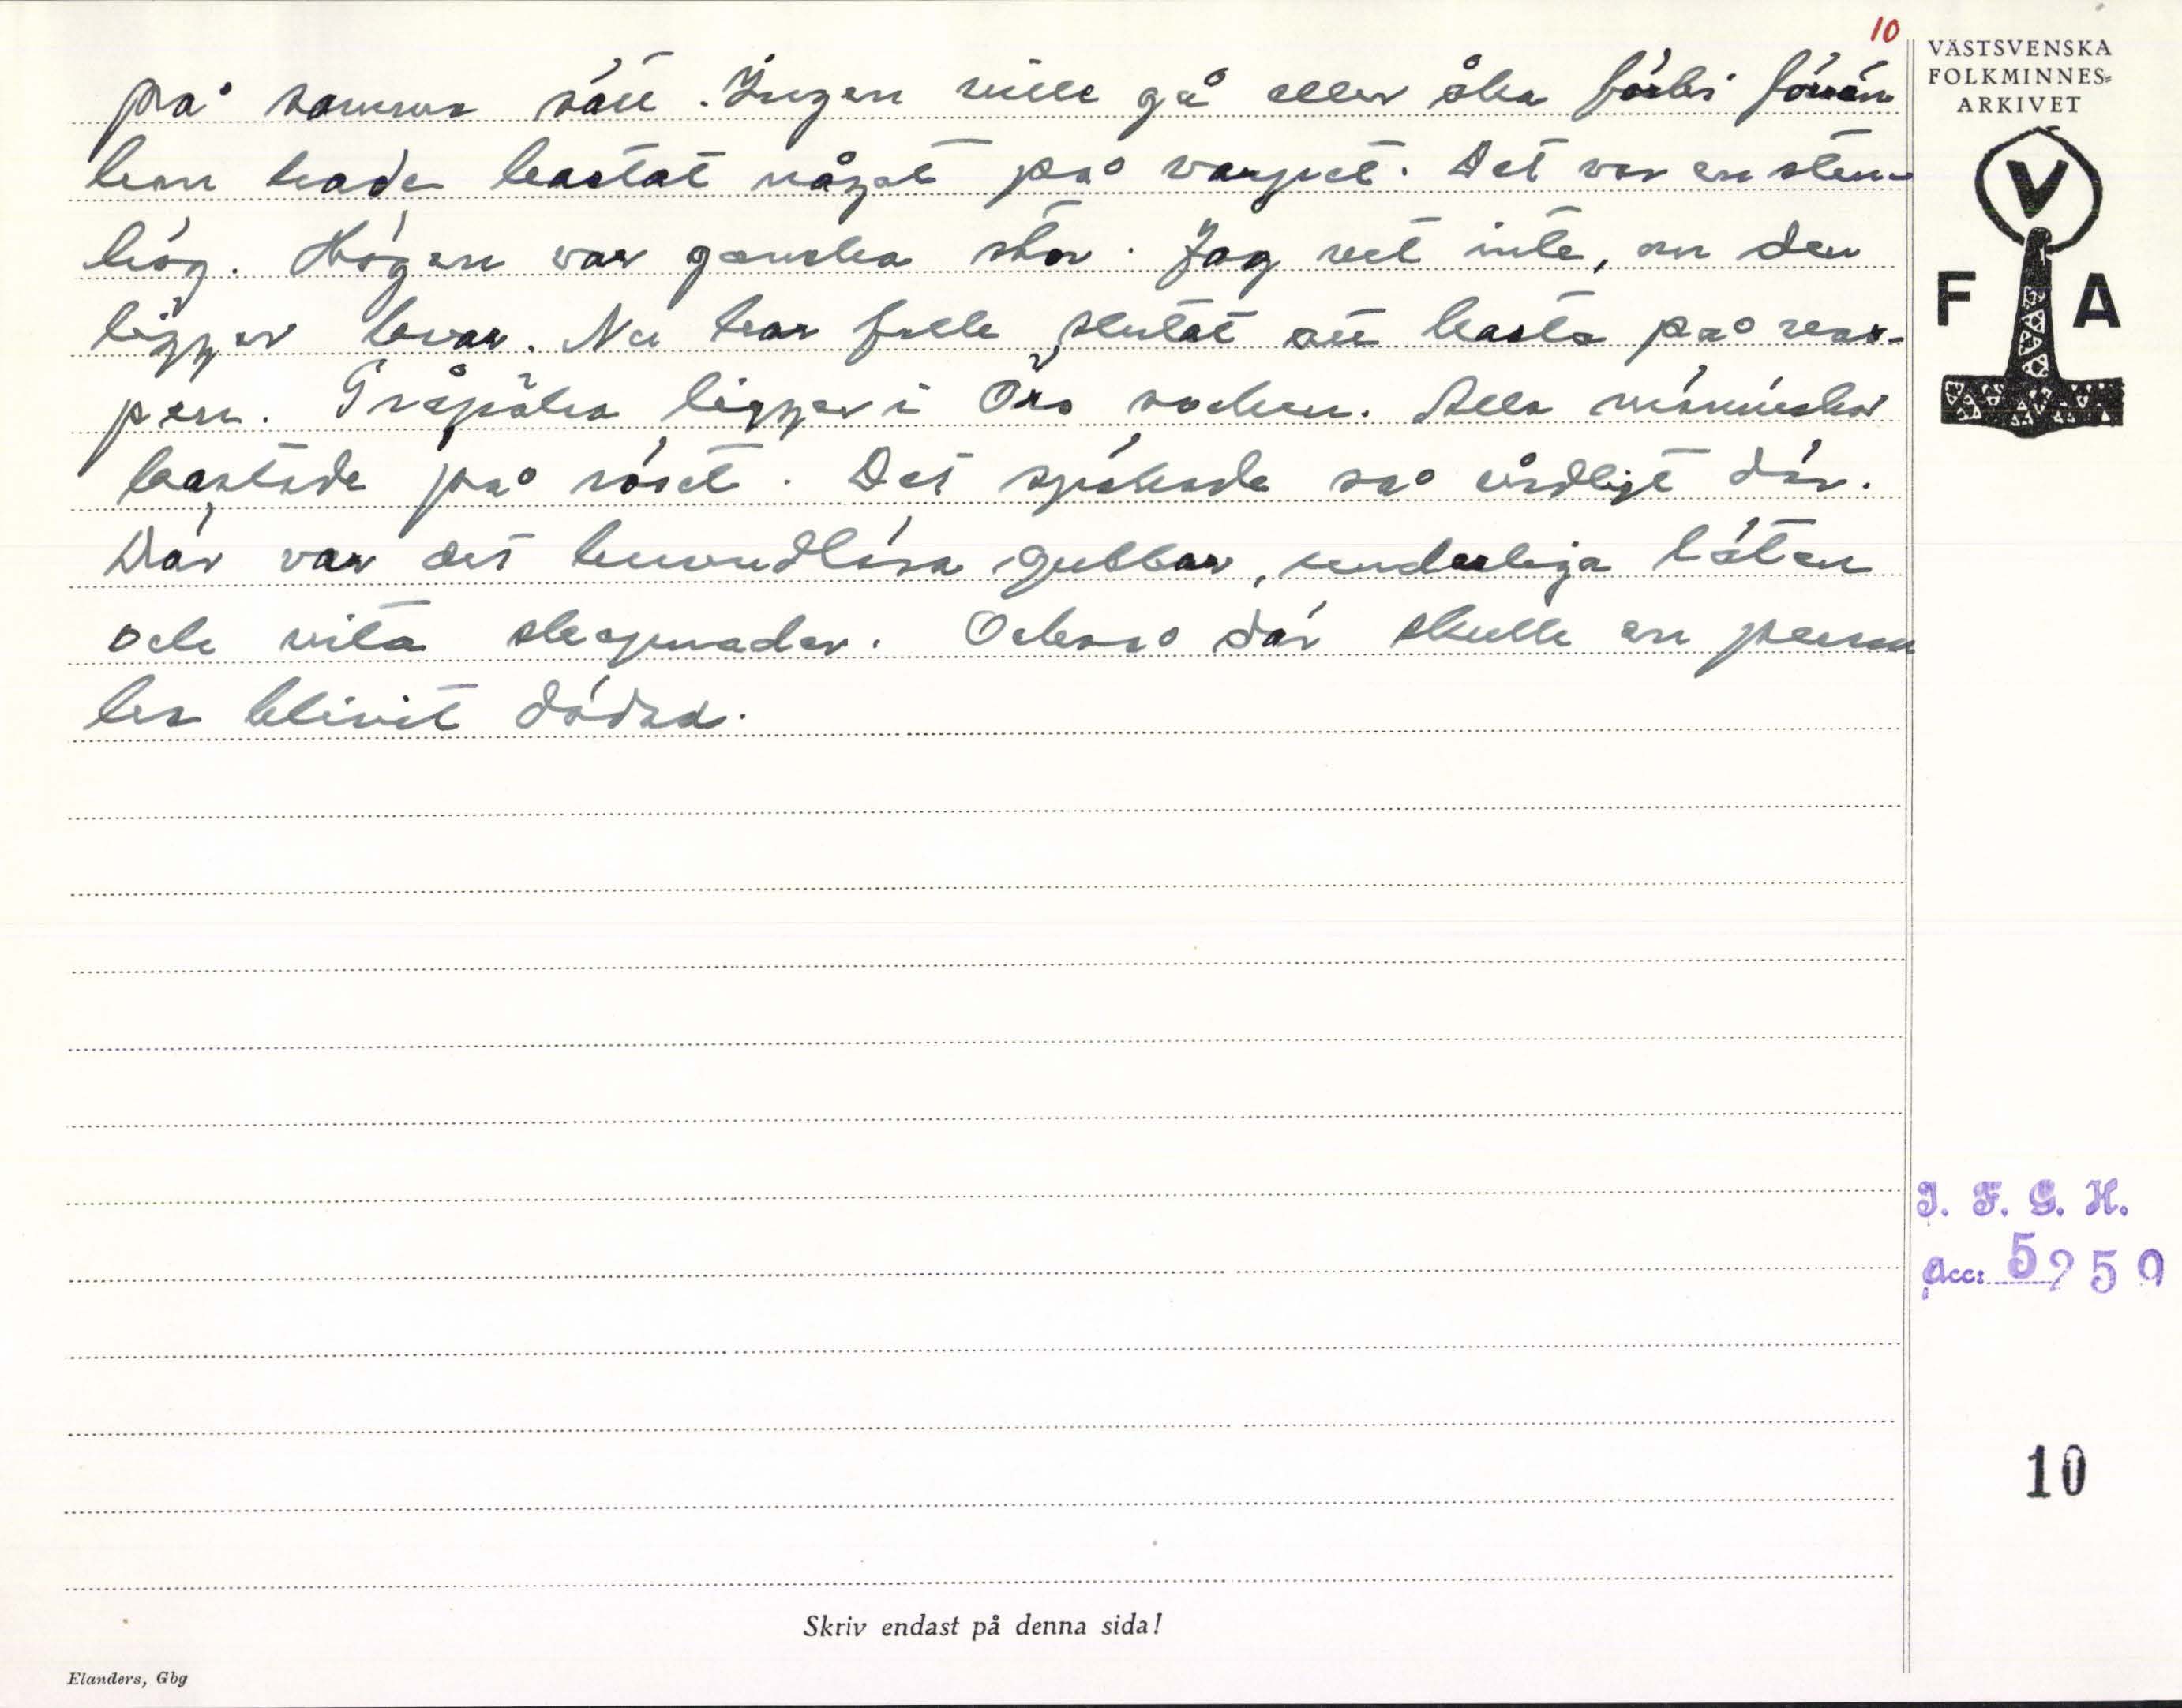 10
på samma sätt. Ingen ville gå eller åka förbi förrän
han hade kastat något på varpet. Det var en sten-
hög. Högen var ganska stor. Jag vet inte, om den
ligger kvar. Nu har folk slutat att kasta på var-
pen. Gråpöka ligger i Örs socken. Alla människor
kastade på röset. Det spökade så ordligt där.
Där var det huvudlösa gubbar, underliga läten
och vita skepnader. Också där skulle en person
ha blivit dödad.
VÄSTSVENSKA
FOLKMINNES-
ARKIVET
V
F A
I. F. G. H.
Acc: 5950
10
Skriv endast på denna sida!
Elanders, Gbg